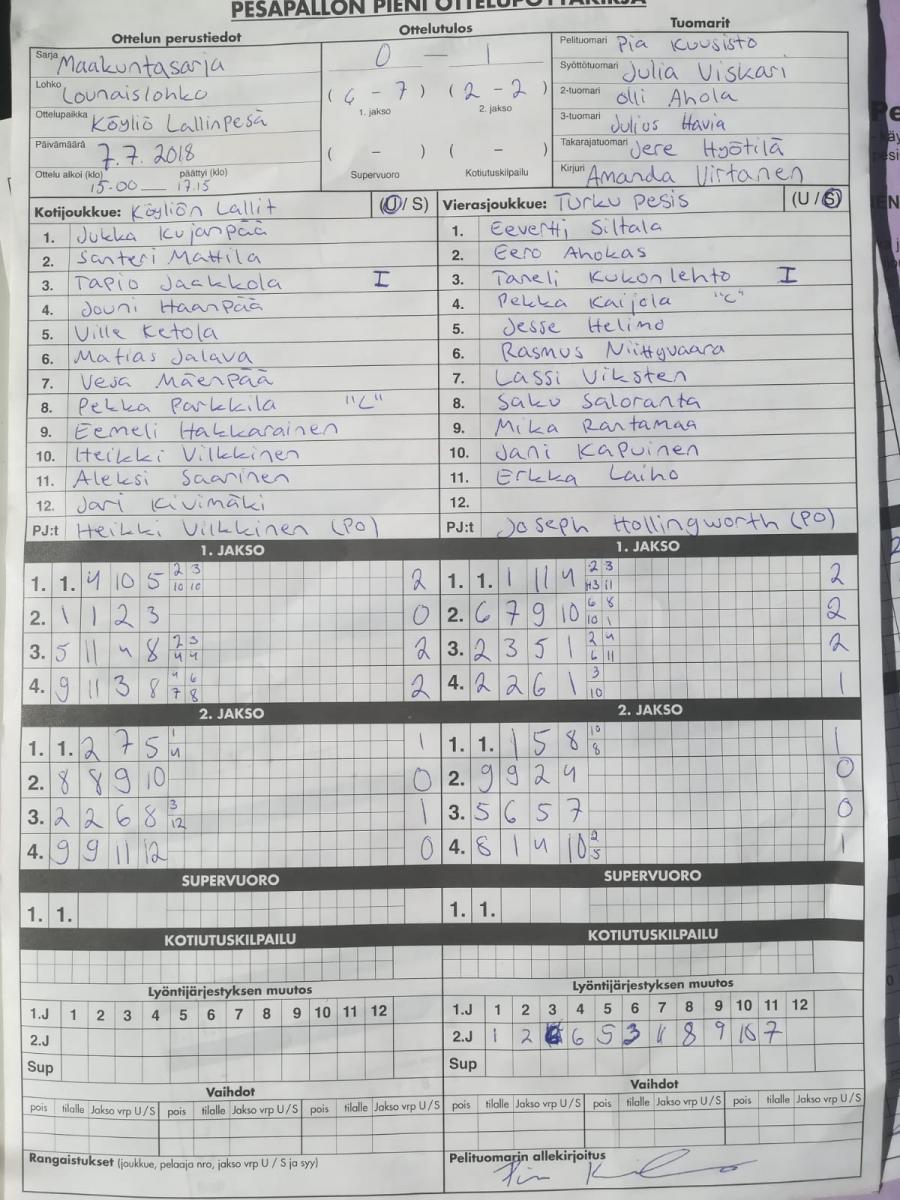 PESÄPALLON PIENI OTTELUPÖYTÄKIRJA
Ottelun perustiedot
Sarja Maakuntasarja
Lohko Lounaislohko
Ottelupaikka Köyliö Lallinpesä
Päivämäärä 7.7.2018
Ottelu alkoi (klo) päättyi (klo)
15.00 — 17.15
Ottelutulos
0 — 1
( 6 - 7 ) ( 2 - 2 )
1. jakso 2. jakso
( - ) ( - )
Supervuoro Kotiutuskilpailu
Tuomarit
Pelituomari Pia Kuusisto
Syöttötuomari Julia Viskari
2-tuomari Olli Ahola
3-tuomari Julius Havia
Takarajatuomari Jere Hyötilä
Kirjuri Amanda Virtanen
Kotijoukkue: Köyliön Lallit (U / S)
1. Jukka Kujanpää
2. Santeri Mattila
3. Tapio Jaakkola I
4. Jouni Haanpää
5. Ville Ketola
6. Matias Jalava
7. Vesa Mäenpää
8. Pekka Parkkila "L"
9. Eemeli Hakkarainen
10. Heikki Vilkkinen
11. Aleksi Saarinen
12. Jari Kivimäki
PJ:t Heikki Vilkkinen (PO)
Vierasjoukkue: Turku Pesis (U / S)
1. Eevertti Siltala
2. Eero Ahokas
3. Taneli Kukonlehto I
4. Pekka Kaijola "C"
5. Jesse Helimo
6. Rasmus Niittyvaara
7. Lassi Viksten
8. Saku Saloranta
9. Mika Rantamaa
10. Jani Kapuinen
11. Erkka Laiho
12.
PJ:t Joseph Hollingworth (PO)
1. JAKSO
1. 1. 4 10 5 2 3 2
10 10
2. 1 1 2 3 0
3. 5 11 4 8 2 3 2
4 4
4. 9 11 3 8 4 6 2
7 8
2. JAKSO
1. 1. 2 7 5 1 1
4
2. 8 8 9 10 0
3. 2 2 6 8 3 1
12
4. 9 9 11 12 0
SUPERVUORO
1. 1.
KOTIUTUSKILPAILU
Lyöntijärjestyksen muutos
1.J 1 2 3 4 5 6 7 8 9 10 11 12
2.J
Sup
Vaihdot
pois tilalle Jakso vrp U / S pois tilalle Jakso vrp U / S pois tilalle Jakso vrp U / S
Rangaistukset (joukkue, pelaaja nro, jakso vrp U / S ja syy)
1. JAKSO
1. 1. 1 11 4 2 3 2
11
2. 6 7 9 10 6 8 2
10 1
3. 2 3 5 1 2 4 2
6 11
4. 2 2 6 1 3 1
10
2. JAKSO
1. 1. 1 5 8 10 1
8
2. 9 9 2 4 0
3. 5 6 5 7 0
4. 8 1 4 10 2 1
5
SUPERVUORO
1. 1.
KOTIUTUSKILPAILU
Lyöntijärjestyksen muutos
1.J 1 2 3 4 5 6 7 8 9 10 11 12
2.J 1 2 6 5 3 11 8 9 10 7
Sup
Vaihdot
pois tilalle Jakso vrp U / S pois tilalle Jakso vrp U / S pois tilalle Jakso vrp U / S
Pelituomarin allekirjoitus